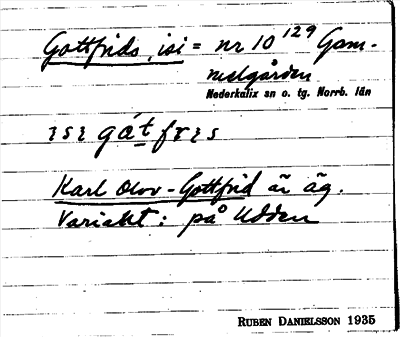 Gottfrids, isi = nr 10 129 Gam-
melgården
Nederkalix sn o. tg. Norrb. län
ɪsɪ gátfrɪs
Karl Olov-Gottfrid är äg.
Variant: på Udden
RUBEN DANIELSSON 1935